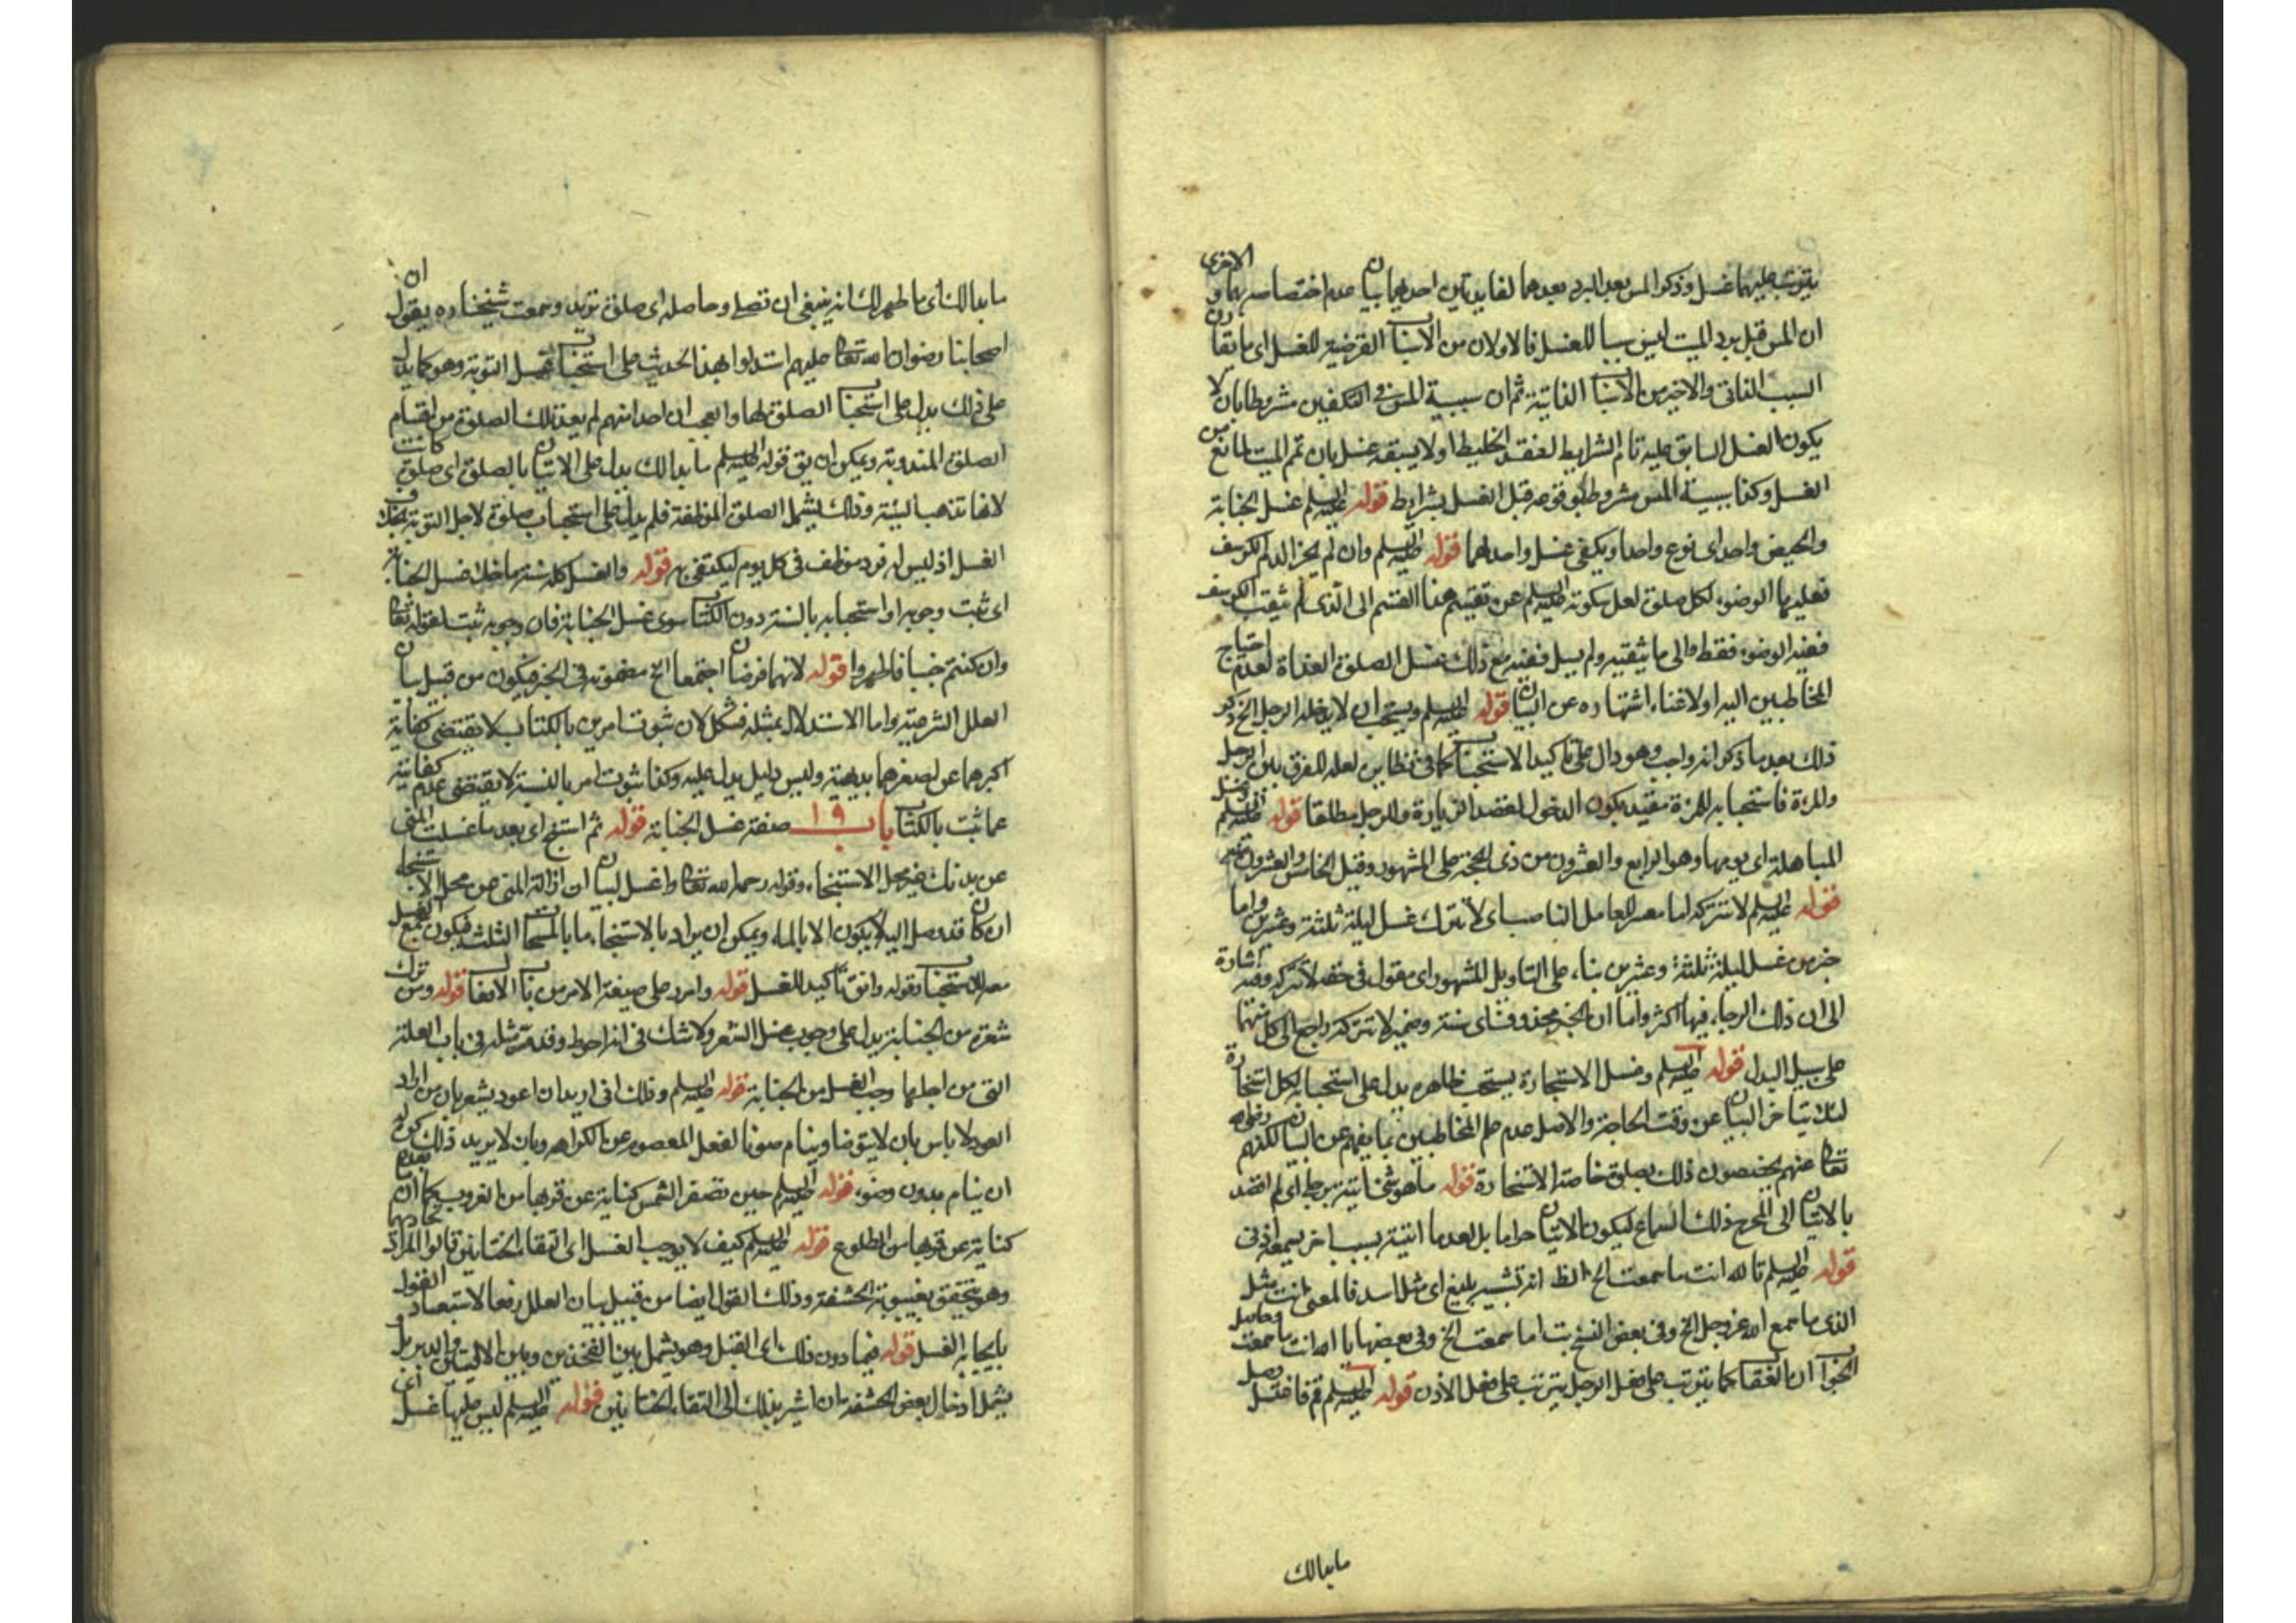 يترتب عليهما غسل وذكر المس بعد البرد بعدهما لفايدتين احدهما بيان عدم اختصاصهما و الاخرى
ان المس قبل برد الميت ليس سببا للغسل فالاولان من الاسباب القرضية للغسل اى ما يقارن
السبب الفاتى والاخير من الاسباب الفاتية ثم ان سببية المس فى التكفين مشروط بان لا
يكون الغسل السابق عليه تام الشرايط لفقد الخليط او لا يسبقه غسل بان تمم الميت لمانع من
الغسل وكذا سببية المس مشروط بوقوعه قبل الغسل بشرايط قوله عليه السلم غسل الجنابة
والحيض واحد اى نوع واحد او يكفى غسل واحد لهما قوله عليه السلم وان لم يجز الدم الكرسف
فعليها الوضوء لكل صلوة لعل سكوته عليه السلم عن تقسيم هذا القسم الى الذى لم يثقب الكرسف
ففيه الوضوء فقط والى ما يثقبه ولم يسل ففيه مع ذلك غسل الصلوة الغداة لعدم احتياج
المخاطبين اليه او لاغناء اشتهاره عن البيان قوله عليه السلم ويستحب ان لا يدخله الرجل الخ ذكر
ذلك بعد ما ذكر انه واجب وهو دال على تاكيد الاستحباب كما فى نظايره لعله للفرق بين الرجل
والمرءة فاستحبابه للمرءة مقيد بكون الدخول لقصد الزيارة وللرجل مطلقا قوله عليه السلم وغسل
المباهلة اى يومها وهو الرابع والعشرون من ذى الحجة على المشهور وقيل الخامس والعشرون
قوله عليه السلم لا تتركه اما مصدر للعامل الناصب اى لا تترك غسل ليلة ثلثة وعشرين واما
خبر من غسل ليلة ثلثة وعشرين بناء على التاويل المشهور اى مقول فى حقه لا تتركه وفيه اشارة
الى ان ذلك الرجاء فيها اكثر واما ان الخبر محذوف اى سنة وضمير لا تتركه راجع الى كل منهما
على سبيل البدل قوله عليه السلم وغسل الاستخارة يستحب ظاهره يدل على استحبابه لكل استخارة
لئلا يتاخر البيان عن وقت الحاجة والاصل عدم علم المخاطبين بما يغنيهم عن البيان لكنهم رضوان الله
تعالى عنهم يخصون ذلك بصلوة خاصة الاستخارة قوله ما هو شئ اتيته برجلى اى لم اقصد
بالاتيان الى المخرج ذلك السماع ليكون الاتيان حراما بل بعد ما اتيته بسبب اخر يسمعه اذنى
قوله عليه السلم تالله انت ما سمعت الخ الظ انه تشبيه بليغ اى مثل اسد فالمعنى انت مثل
الذى ما سمع الله عز وجل الخ وفى بعض النسخ بت اما سمعت الخ وفى بعضها يا الله انت ما سمعت وحاصل
الجواب ان العقاب كما يترتب على فعل الرجل يترتب على فعل الاذن قوله عليه السلم قم فاغتسل وصل
ما بدا لك
ما بدا لك اى ما ظهر لك انه ينبغى ان تصلى وحاصله اى صلوة تريد وسمعت شيخنا ره يقول ان
اصحابنا رضوان الله تعالى عليهم استدلوا بهذا الحديث على استحباب غسل التوبة وهو كما يدل
على ذلك يدل على استحباب الصلوة لها والعجب ان احدا منهم لم يعد تلك الصلوة من اقسام
الصلوة المندوبة ويمكن ان يق قوله عليه السلم ما بدا لك يدل على الاتيان بالصلوة اى صلوة كانت
لانها تذهب السيئة وذلك يشمل الصلوة الموظفة فلم يدل على استحباب صلوة لاجل التوبة بخلاف
الغسل اذ ليس له فرد موظف فى كل يوم ليكتفى به قوله والغسل كله سنة ما خلا غسل الجنابة
اى ثبت وجوبه او استحبابه بالسنة دون الكتاب سوى غسل الجنابة فان وجوبه ثبت بقوله تعالى
وان كنتم جنبا فاطهروا قوله لانهما فرضان اجتمعا الخ مضمونه فى الخبر فيكون من قبيل بيان
العلل الشرعية واما الاستدلال بمثله فمشكل لان ثبوت امرين بالكتاب لا يقتضى كفاية
اكبرهما عن اصغرهما بديهة وليس دليل يدل عليه وكذا ثبوت امر بالسنة لا يقتضى عدم كفايته
عما ثبت بالكتاب باب ١٩ صفة غسل الجنابة قوله ثم استنج اى بعد ما غسلت المنى
عن بدنك غير محل الاستنجاء وقوله رحمه الله تعالى واغسل لبيان ان ازالة المنى عن محل الاستنجاء
ان كان قد وصل اليه لا يكون الا بالماء ويمكن ان يراد بالاستنجاء ما بالمسحات الثلث فيكون جمع الغسل
معه للاستحباب وقوله وانق تاكيد للغسل قوله وامرر على صيغة الامر من باب الافعال قوله ومن ترك
شعرة من الجنابة يدل على وجوب غسل الشعر ولا شك فى انه احوط وقد مر مثله فى باب العلة
التى من اجلها وجب الغسل من الجنابة قوله عليه السلم وذلك انى اريد ان اعود يشعر بان من اراد
العود لا باس بان لا يتوضا وينام صونا لفعل المعصوم عن الكراهة وبان لا يريد ذلك كون
ان ينام بدون وضوء قوله عليه السلم حين تصفر الشمس كناية عن قربها من الغروب كما ان
كناية عن قربها من الطلوع قوله عليه السلم كيف لا يوجب الغسل اى التقاء الختانين قالوا المراد تحاذيهما
وهو يتحقق بغيبوبة الحشفة وذلك القول ايضا من قبيل بيان العلل رفعا لاستبعاد القول
بايجابه الغسل قوله فيما دون ذلك اى القبل وهو يشمل بين الفخذين وبين الاليتين والدبر بل
يشمل ادخال بعض الحشفة بان اشير بذلك الى التقاء الختانين قوله عليه السلم ليس عليها غسل اى